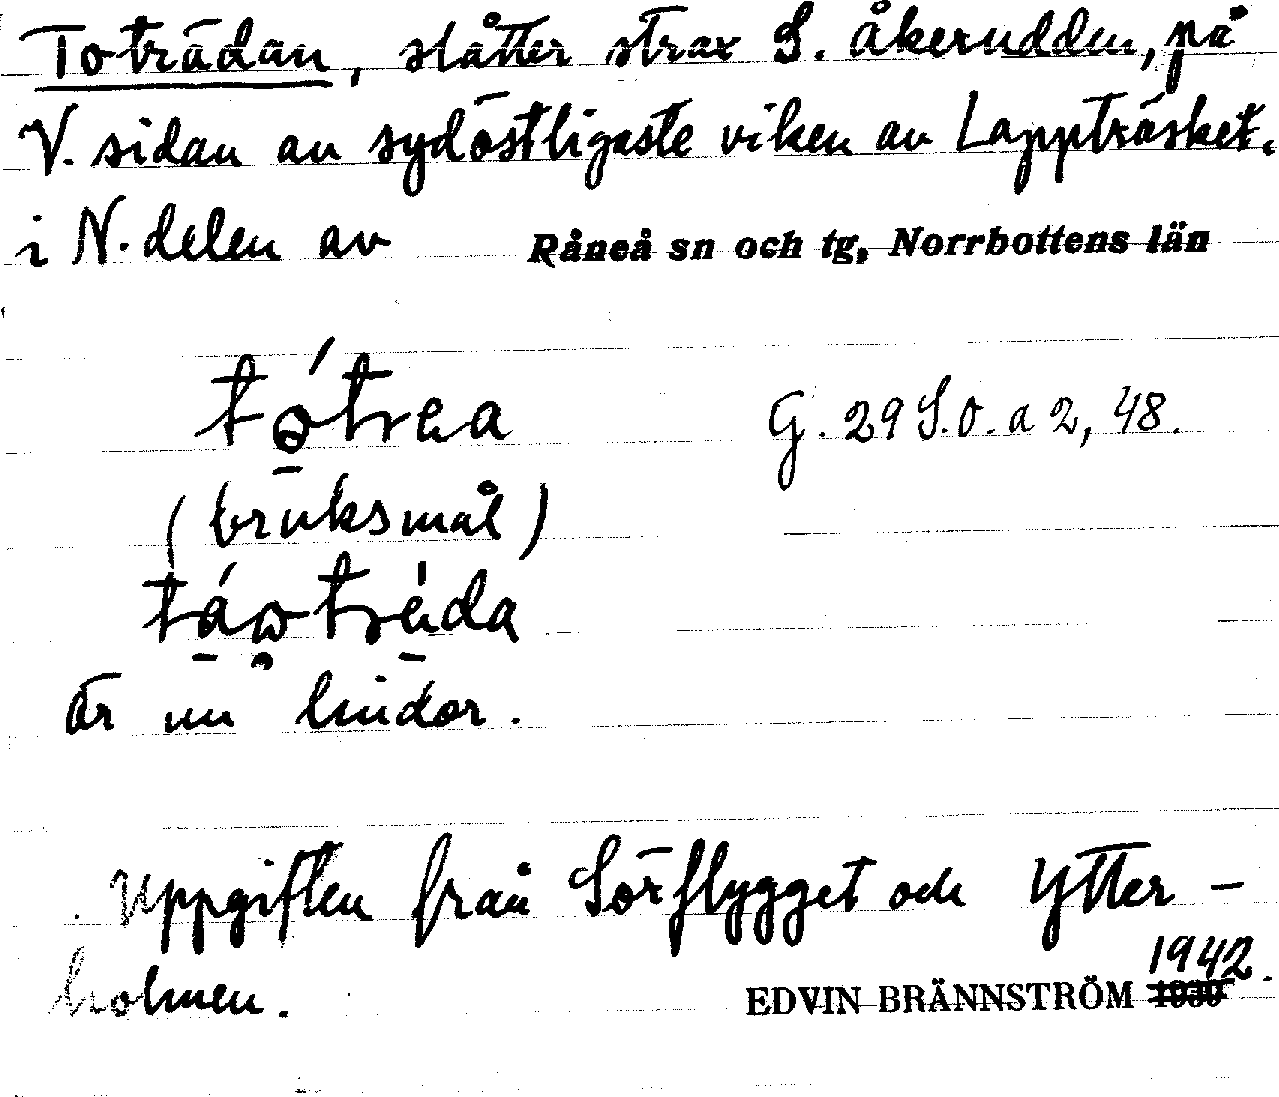 Toträdan, slåtter strax S. åkerudden, på
V. sidan av sydöstligaste viken av Lappträsket.
i N. delen av Råneå sn och tg, Norrbottens län
G. 29 S.O. a 2, 48.
(bruksmål)
är nu lindor.
Uppgiften från Sörflygget och Ytter-
holmen.
1942.
EDVIN BRÄNNSTRÖM 1939